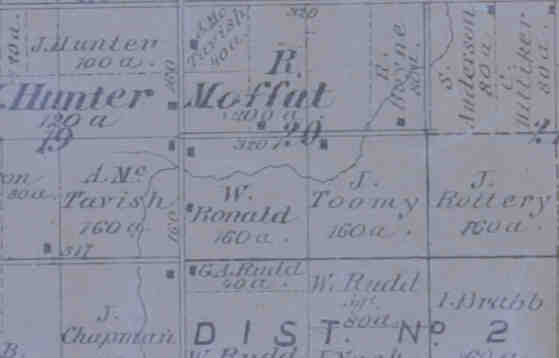 J. Hunter
100 a.
A. Mc
Tavish
40 a.
320
R.
Moffat
200 a.
R.
Bayne
80 a.
S.
Anderson
80 a.
C.
Milliker
80 a.
Hunter
120 a
180
19
20
320
80 a.
A. Mc
Tavish
160 a
317
160
W.
Ronald
160 a.
J.
Toomy
160 a.
J.
Rottery
160 a.
G.A. Rudd
40 a.
W. Rudd
80 a.
I. Brabb
J.
Chapman
DIST. No. 2
B.
W. Rudd